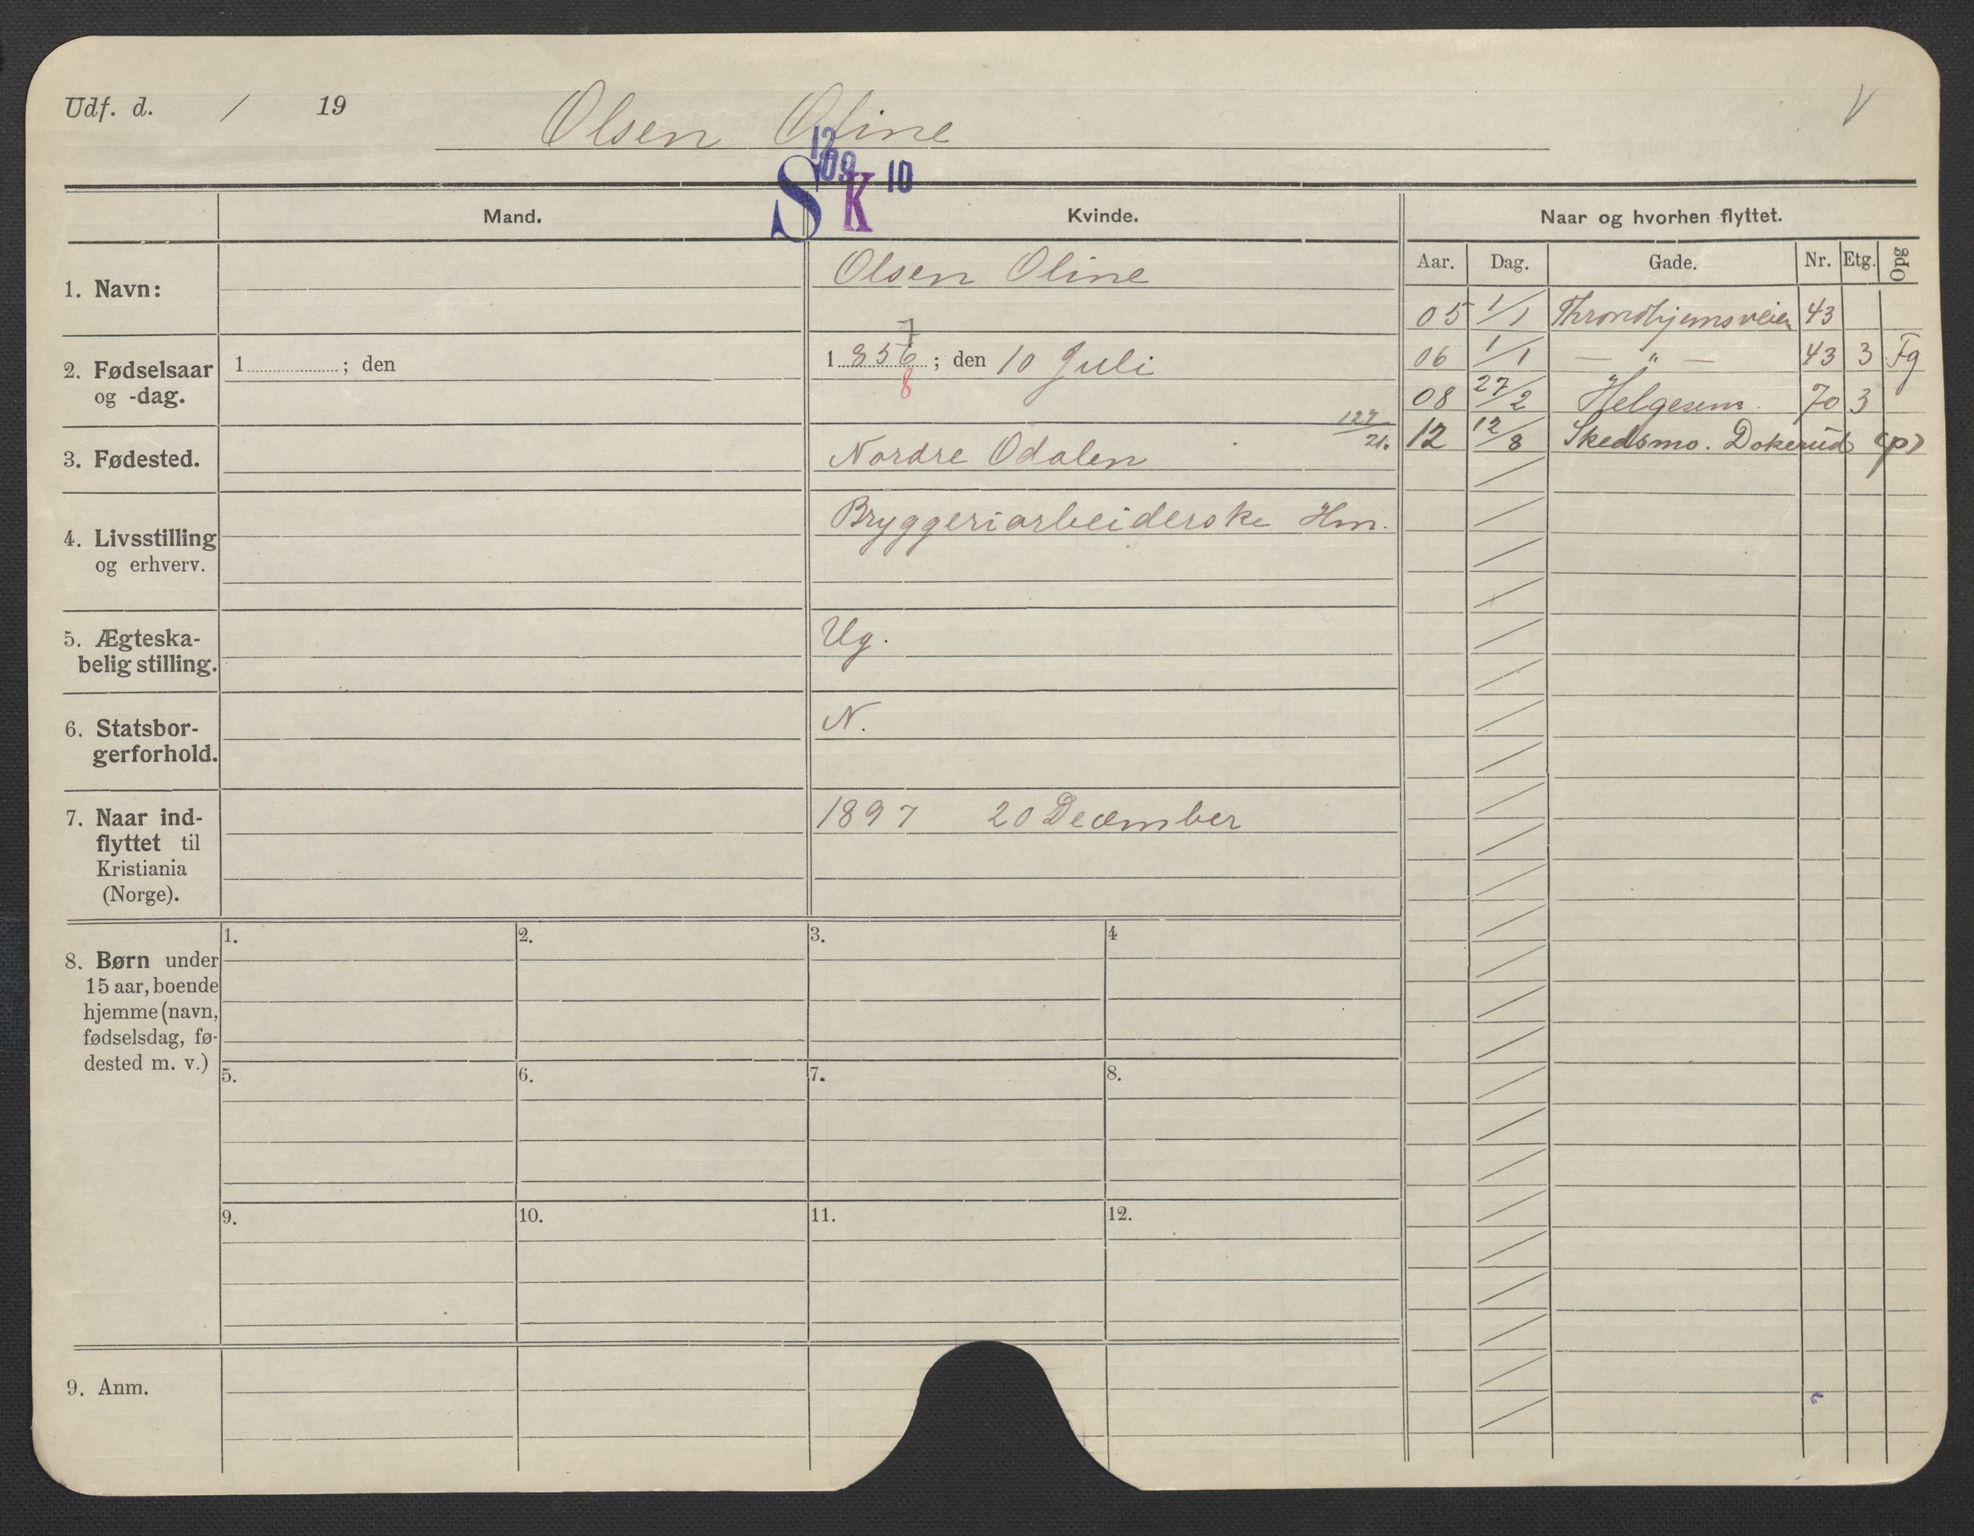 Udf. d. / 19 Olsen Oline V
12
09 10
S K
Mand. Kvinde. Naar og hvorhen flyttet.
Aar. Dag. Gade. Nr. Etg. Opg
1. Navn: Olsen Oline
05 1/1 Throndhjemsveien 43
7
2. Fødselsaar og -dag. 1 ; den 1 856 ; den 10 Juli
8
06 1/1 — " — 43 3 Fg
08 27/2 Helgesens. 70 3
127/21.
12 12/8 Skedsmo. Dokerud (p)
3. Fødested. Nordre Odalen
4. Livsstilling Bryggeriarbeiderske Hm.
og erhverv.
5. Ægteska-
belig stilling. Ug.
6. Statsbor-
gerforhold. N.
7. Naar ind- 1897 20 December
flyttet til
Kristiania
(Norge).
8. Børn under
15 aar, boende
hjemme (navn,
fødselsdag, fø-
dested m. v.)
1. 2. 3. 4
5. 6. 7. 8.
9. 10. 11. 12.
9. Anm.